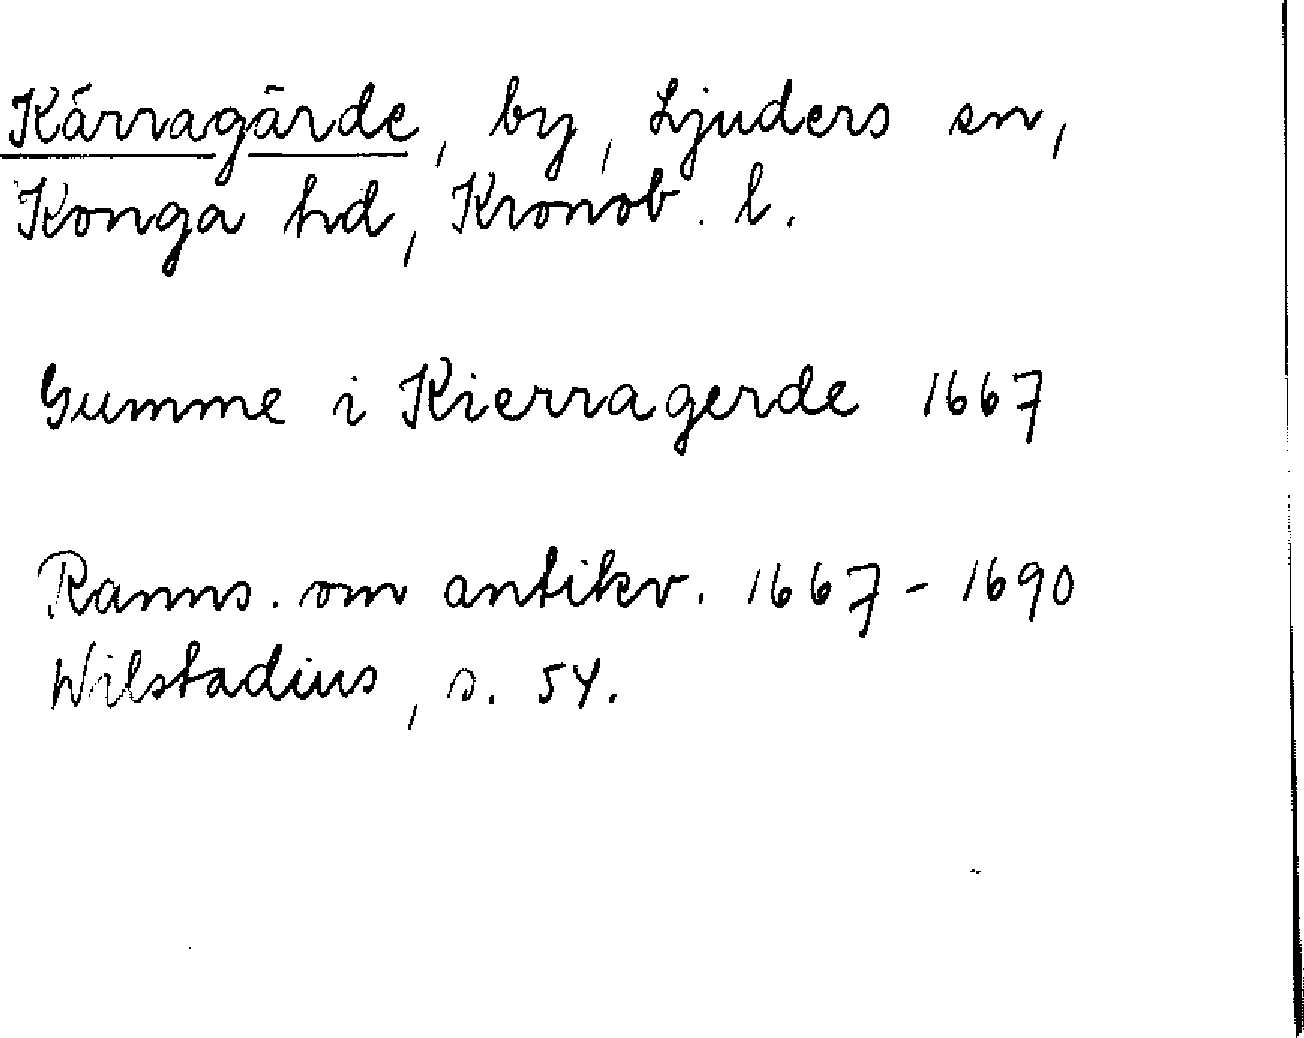 Kärragärde, by, Ljuders sn,
Konga hd, Kronob. l.
Gumme i Kierragerde 1667
Ranns. om antikv. 1667-1690
Wilstadius, s. 54.